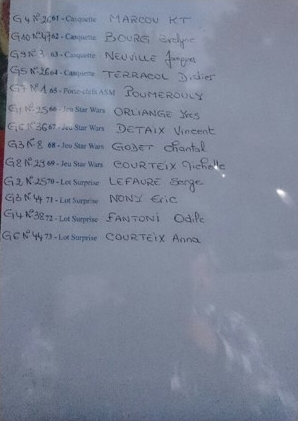 G4 N°20 61 - Casquette MARCOU KT
G10 N°47 62 - Casquette BOURG Evelyne
G9 N°3 63 - Casquette NEUVILLE Jacques
G5 N°26 64 - Casquette TERRACOL Didier
G7 N°1 65 - Porte-clefs ASM POUMEROULY
N°25 66 - Jeu Star Wars ORLIANGE Yves
G6 N°36 67 - Jeu Star Wars DETAIX Vincent
G3 N°8 68 - Jeu Star Wars GODET Chantal
G8 N°29 69 - Jeu Star Wars COURTEIX Michelle
G2 N°25 70 - Lot Surprise LEFAURE Serge
G3 N°44 71 - Lot Surprise NONY Eric
G4 N°38 72 - Lot Surprise FANTONI Odile
G6 N°44 73 - Lot Surprise COURTEIX Anna